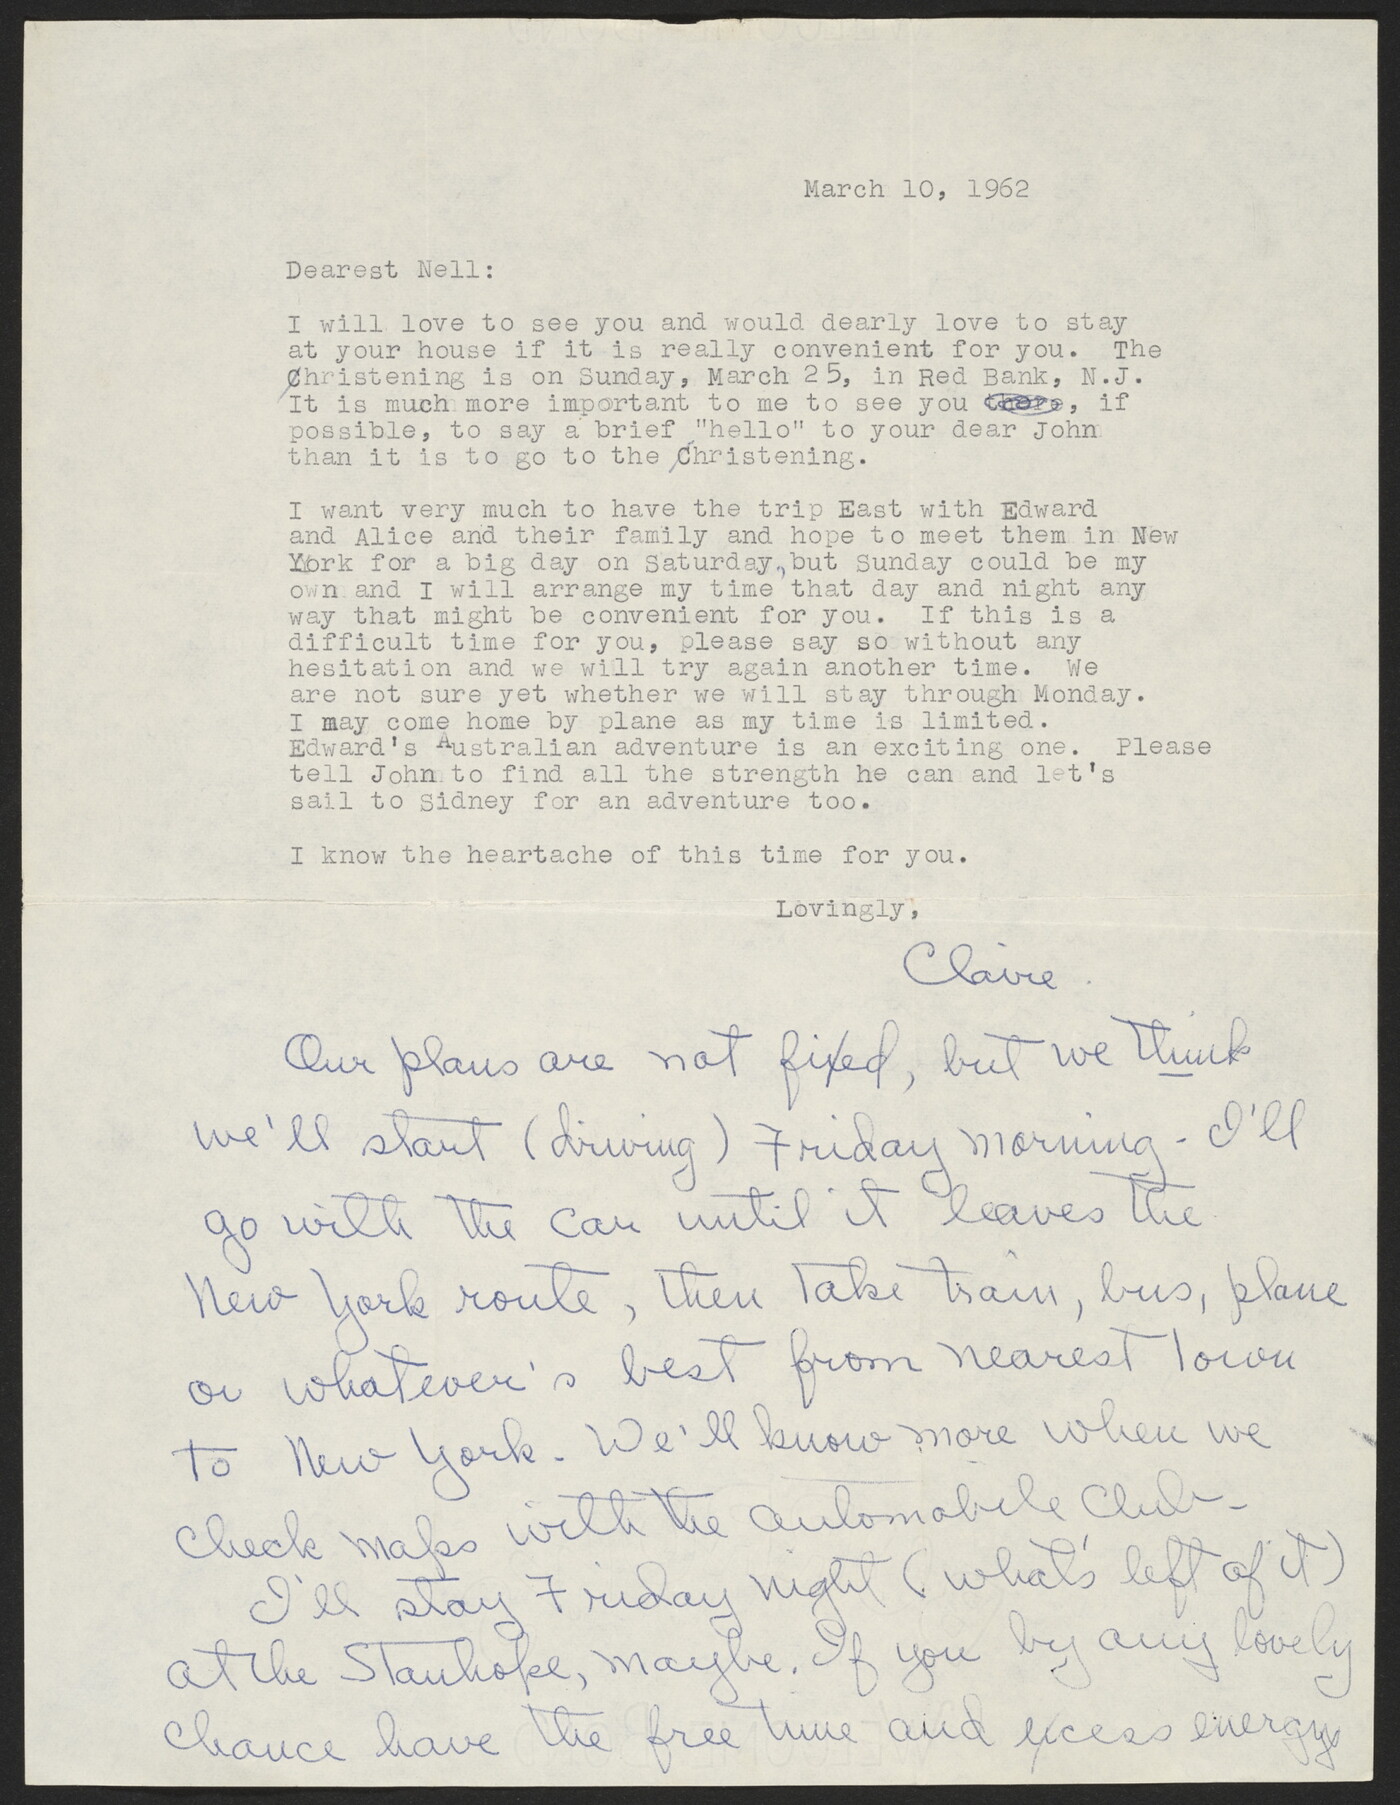 March 10, 1962
Dearest Nell:
I will love to see you and would dearly love to stay
at your house if it is really convenient for you. The
Christening is on Sunday, March 25, in Red Bank, N.J.
It is much more important to me to see you there, if
possible, to say a brief "hello" to your dear John
than it is to go to the Christening.
I want very much to have the trip East with Edward
and Alice and their family and hope to meet them in New
York for a big day on Saturday, but Sunday could be my
own and I will arrange my time that day and night any
way that might be convenient for you. If this is a
difficult time for you, please say so without any
hesitation and we will try again another time. We
are not sure yet whether we will stay through Monday.
I may come home by plane as my time is limited.
Edward's Australian adventure is an exciting one. Please
tell John to find all the strength he can and let's
sail to Sidney for an adventure too.
I know the heartache of this time for you.
Lovingly,
Claire
Our plans are not fixed, but we think
we'll start (driving) Friday morning - I'll
go with the car until it leaves the
New York route, then take train, bus, plane
or whatever's best from nearest town
to New York. We'll know more when we
check maps with the automobile Club -
I'll stay Friday night (what's left of it)
at the Stanhope, maybe. If you by any lovely
chance have the free time and excess energy